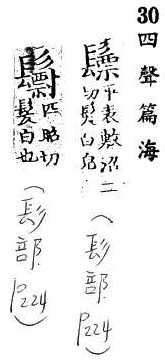 30 四聲篇海
平表敷沼二
切髮白皃
（髟部 P224）
匹昭切
髮白也
（髟部 P224）